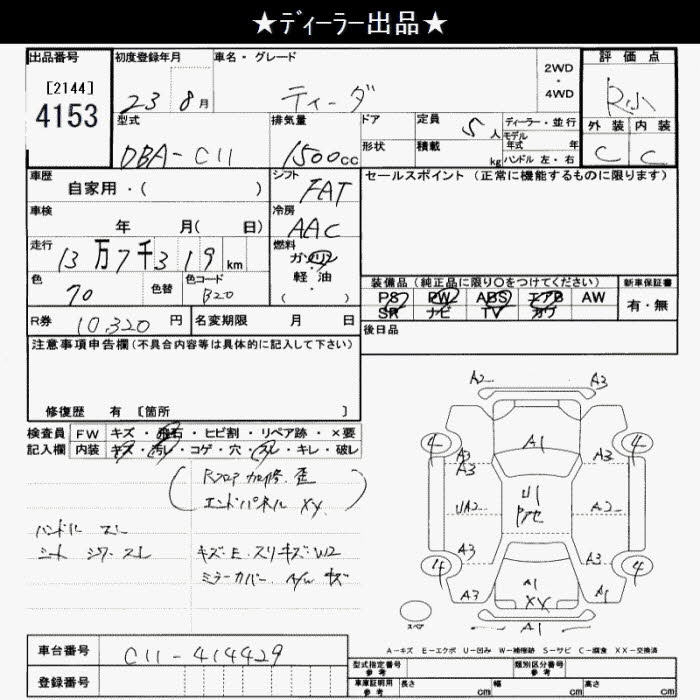 ★ディーラー出品★
出品番号 初度登録年月 車名・グレード 2WD・4WD 評価点
[2144]
4153
23 8月 ティーダ R小
型式 排気量 ドア 定員 5人 ディーラー・並行 外装 内装
モデル年式 年
DBA-C11 1500cc 形状 積載 kg ハンドル 左・右 C C
車歴 シフト セールスポイント(正常に機能するものに限ります)
自家用・( ) FAT
車検 冷房
年 月( 日) AAC
走行 燃料
13万7千319km ガソリン
軽・油
( )
色 色替 色コード 装備品(純正品に限り○をつけてください) 新車保証書
70 B20 PS PW ABS エアB AW 有・無
SR ナビ TV カワ
R券 10,320円 名変期限 月 日 後日品
注意事項申告欄(不具合内容等は具体的に記入して下さい)
修復歴 有 [箇所 ]
検査員 FW キズ・飛石・ヒビ割・リペア跡・×要
記入欄 内装 キズ・汚レ・コゲ・穴・スレ・キレ・破レ
Rフロア 加修 歪
エンドパネル XX
ハンドル スレ
シート シワ・スレ キズ・E・スリキズ W2
ミラーカバー A/W キズ
A2 A3
A1
4 4
A3 A3
A3
UA2 U1 A2
A3 A3
4 4
A3 A1 A1
XX
スペア A1
A-キズ E-エクボ U-凹み W-補修跡 S-サビ C-腐食 XX-交換済
車台番号 C11-414429
型式指定番号 参考 類別区分番号 参考
登録番号 車庫証明用 参考 長さ cm 幅 cm 高さ cm